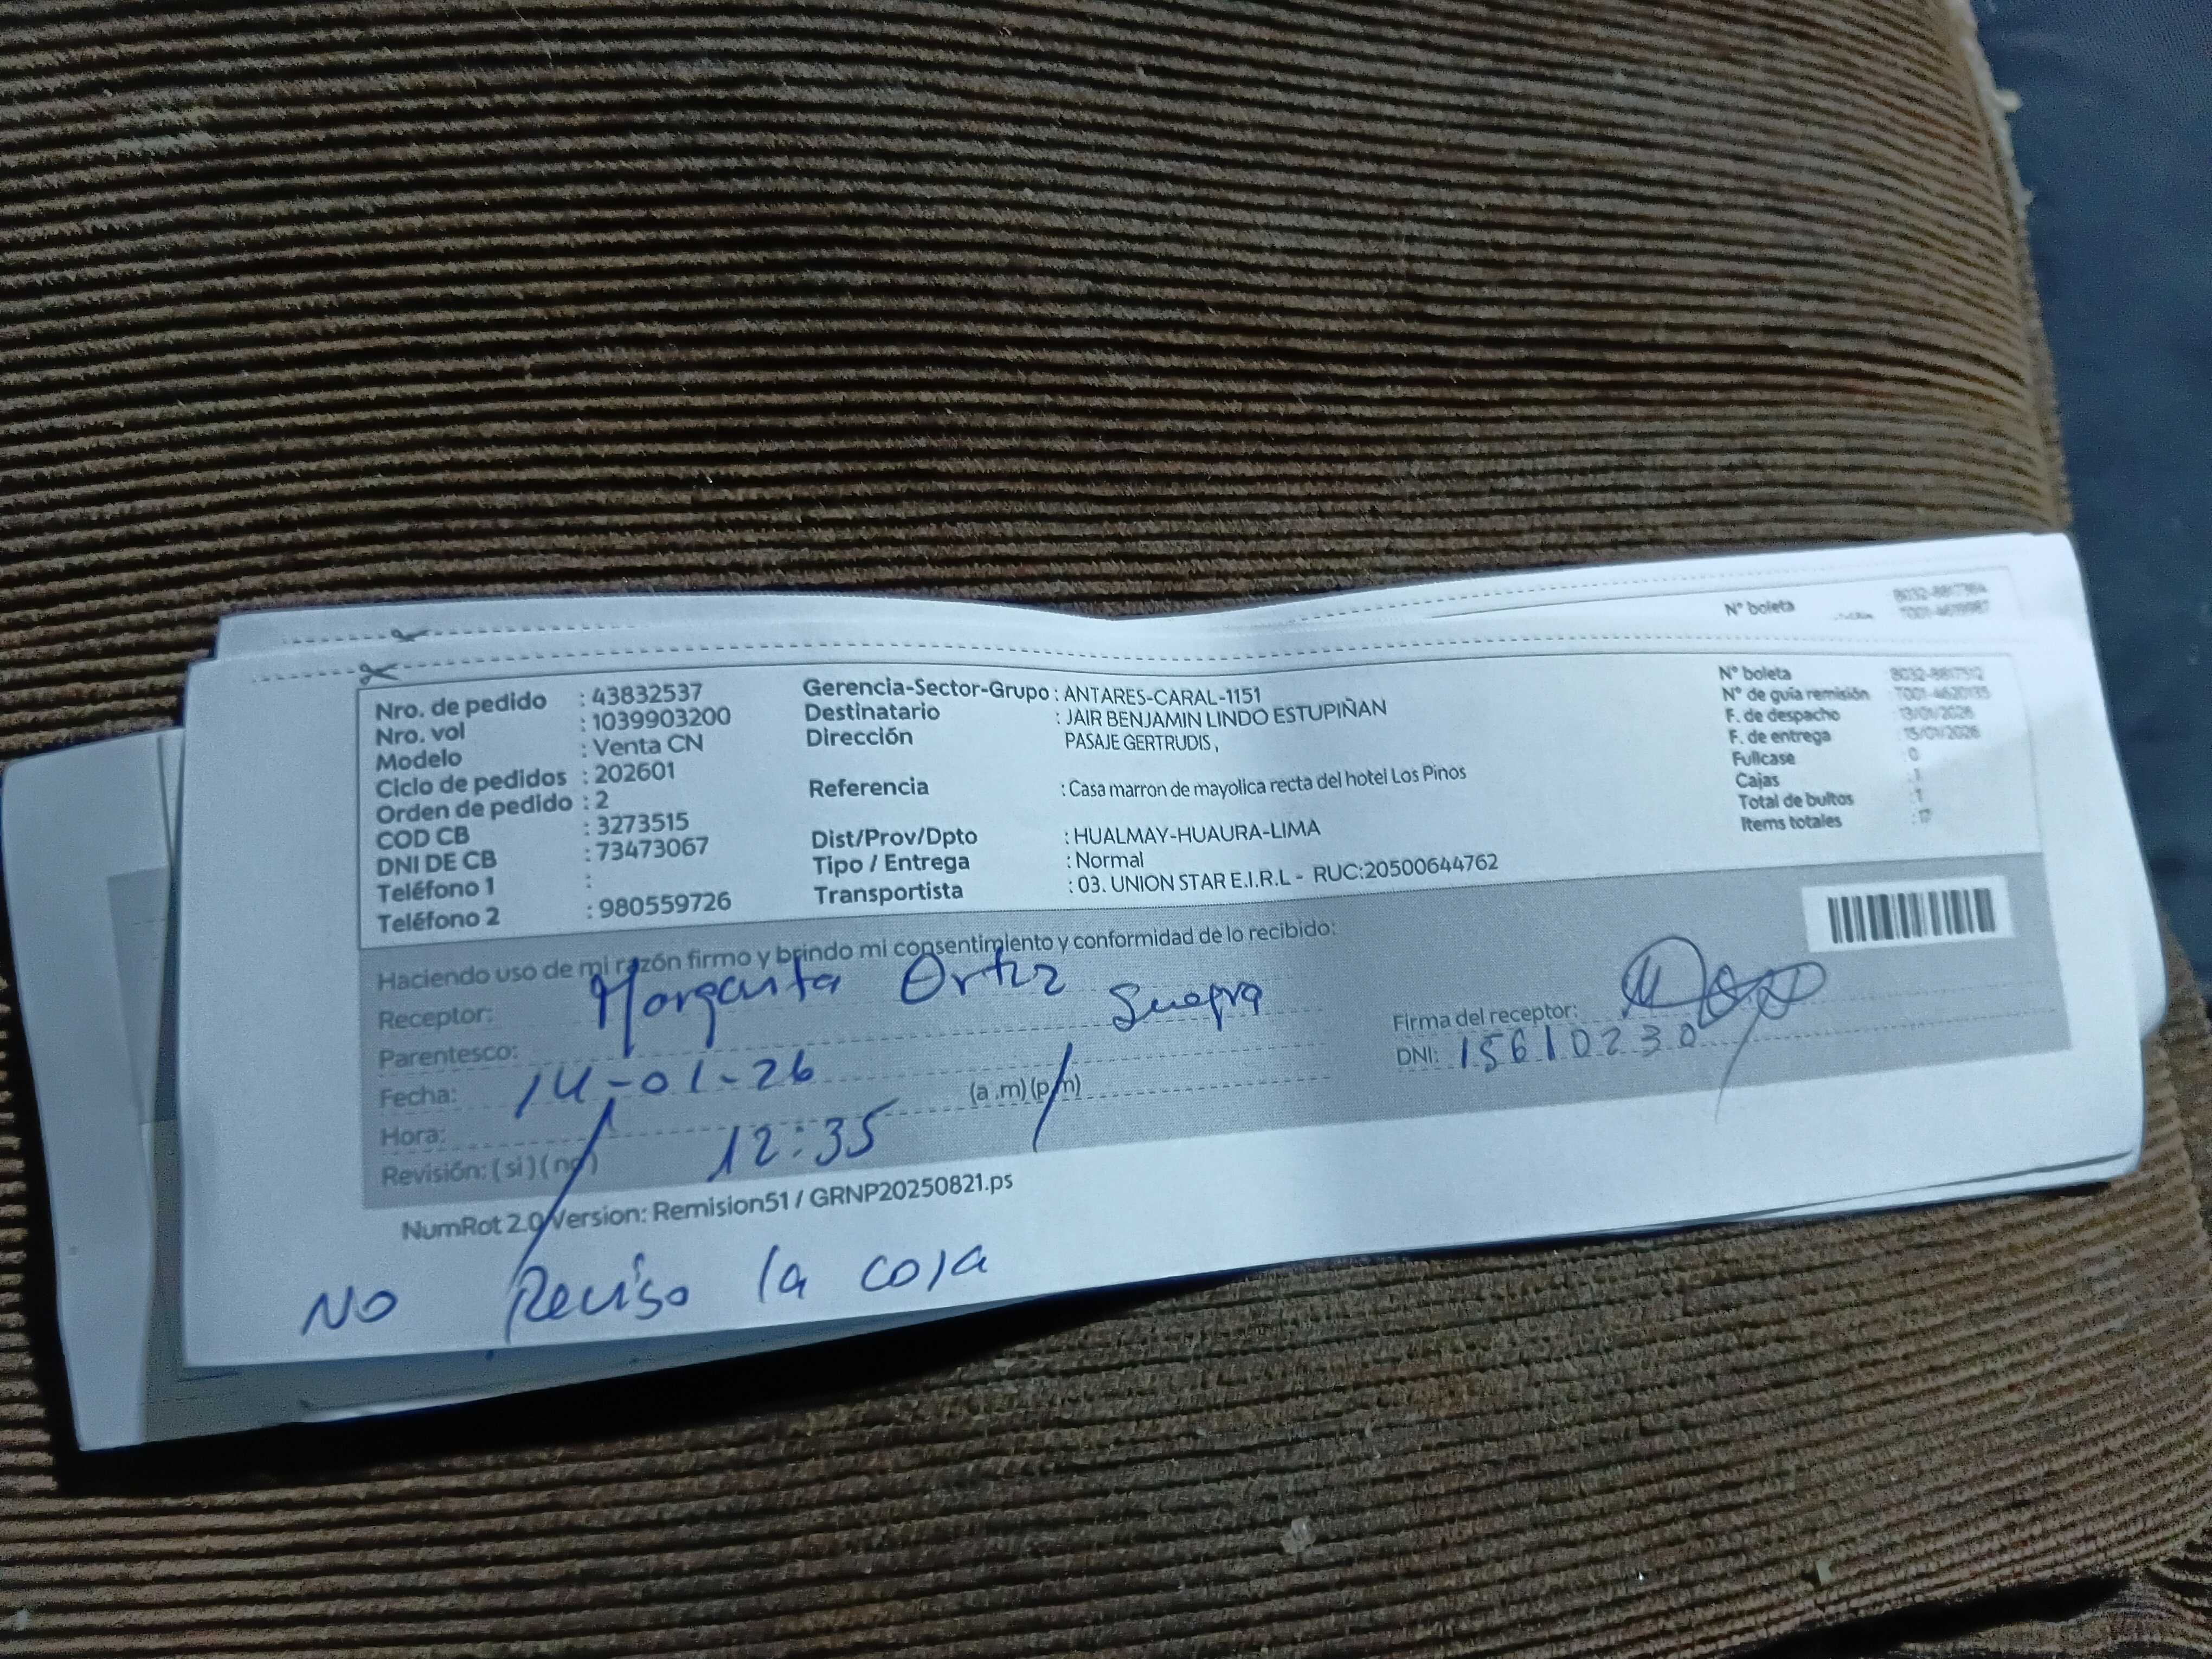 Nº boleta
Nro. de pedido : 43832537
Nro. vol : 1039903200
Modelo : Venta CN
Ciclo de pedidos : 202601
Orden de pedido : 2
COD CB : 3273515
DNI DE CB : 73473067
Teléfono 1 :
Teléfono 2 : 980559726
Gerencia-Sector-Grupo : ANTARES-CARAL-1151
Destinatario : JAIR BENJAMIN LINDO ESTUPIÑAN
Dirección PASAJE GERTRUDIS ,
Referencia : Casa marron de mayolica recta del hotel Los Pinos
Dist/Prov/Dpto : HUALMAY-HUAURA-LIMA
Tipo / Entrega : Normal
Transportista : 03. UNION STAR E.I.R.L - RUC:20500644762
Nº boleta
Nº de guía remisión
F. de despacho : 13/01/2026
F. de entrega : 15/01/2026
Fullcase 0
Cajas : 1
Total de bultos : 1
Items totales : 17
Haciendo uso de mi razón firmo y brindo mi consentimiento y conformidad de lo recibido:
Receptor: Margarita Ortiz
Parentesco: Suegra
Fecha: 14-01-26
Hora: 12:35 (a .m) (p.m)
Revisión: ( si ) ( no )
Firma del receptor:
DNI: 15610230
NumRot 2.0 Version: Remision51 / GRNP20250821.ps
NO Reviso la caja